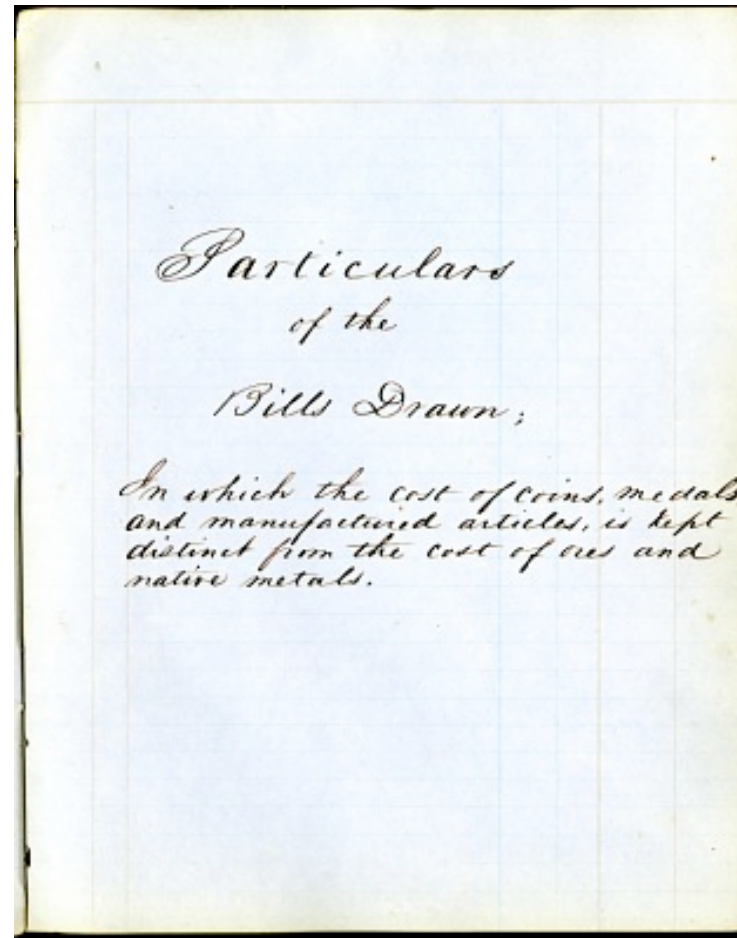 Particulars
of the
Bills Drawn;
In which the cost of coins, medals
and manufactured articles, is kept
distinct from the cost of ores and
native metals.